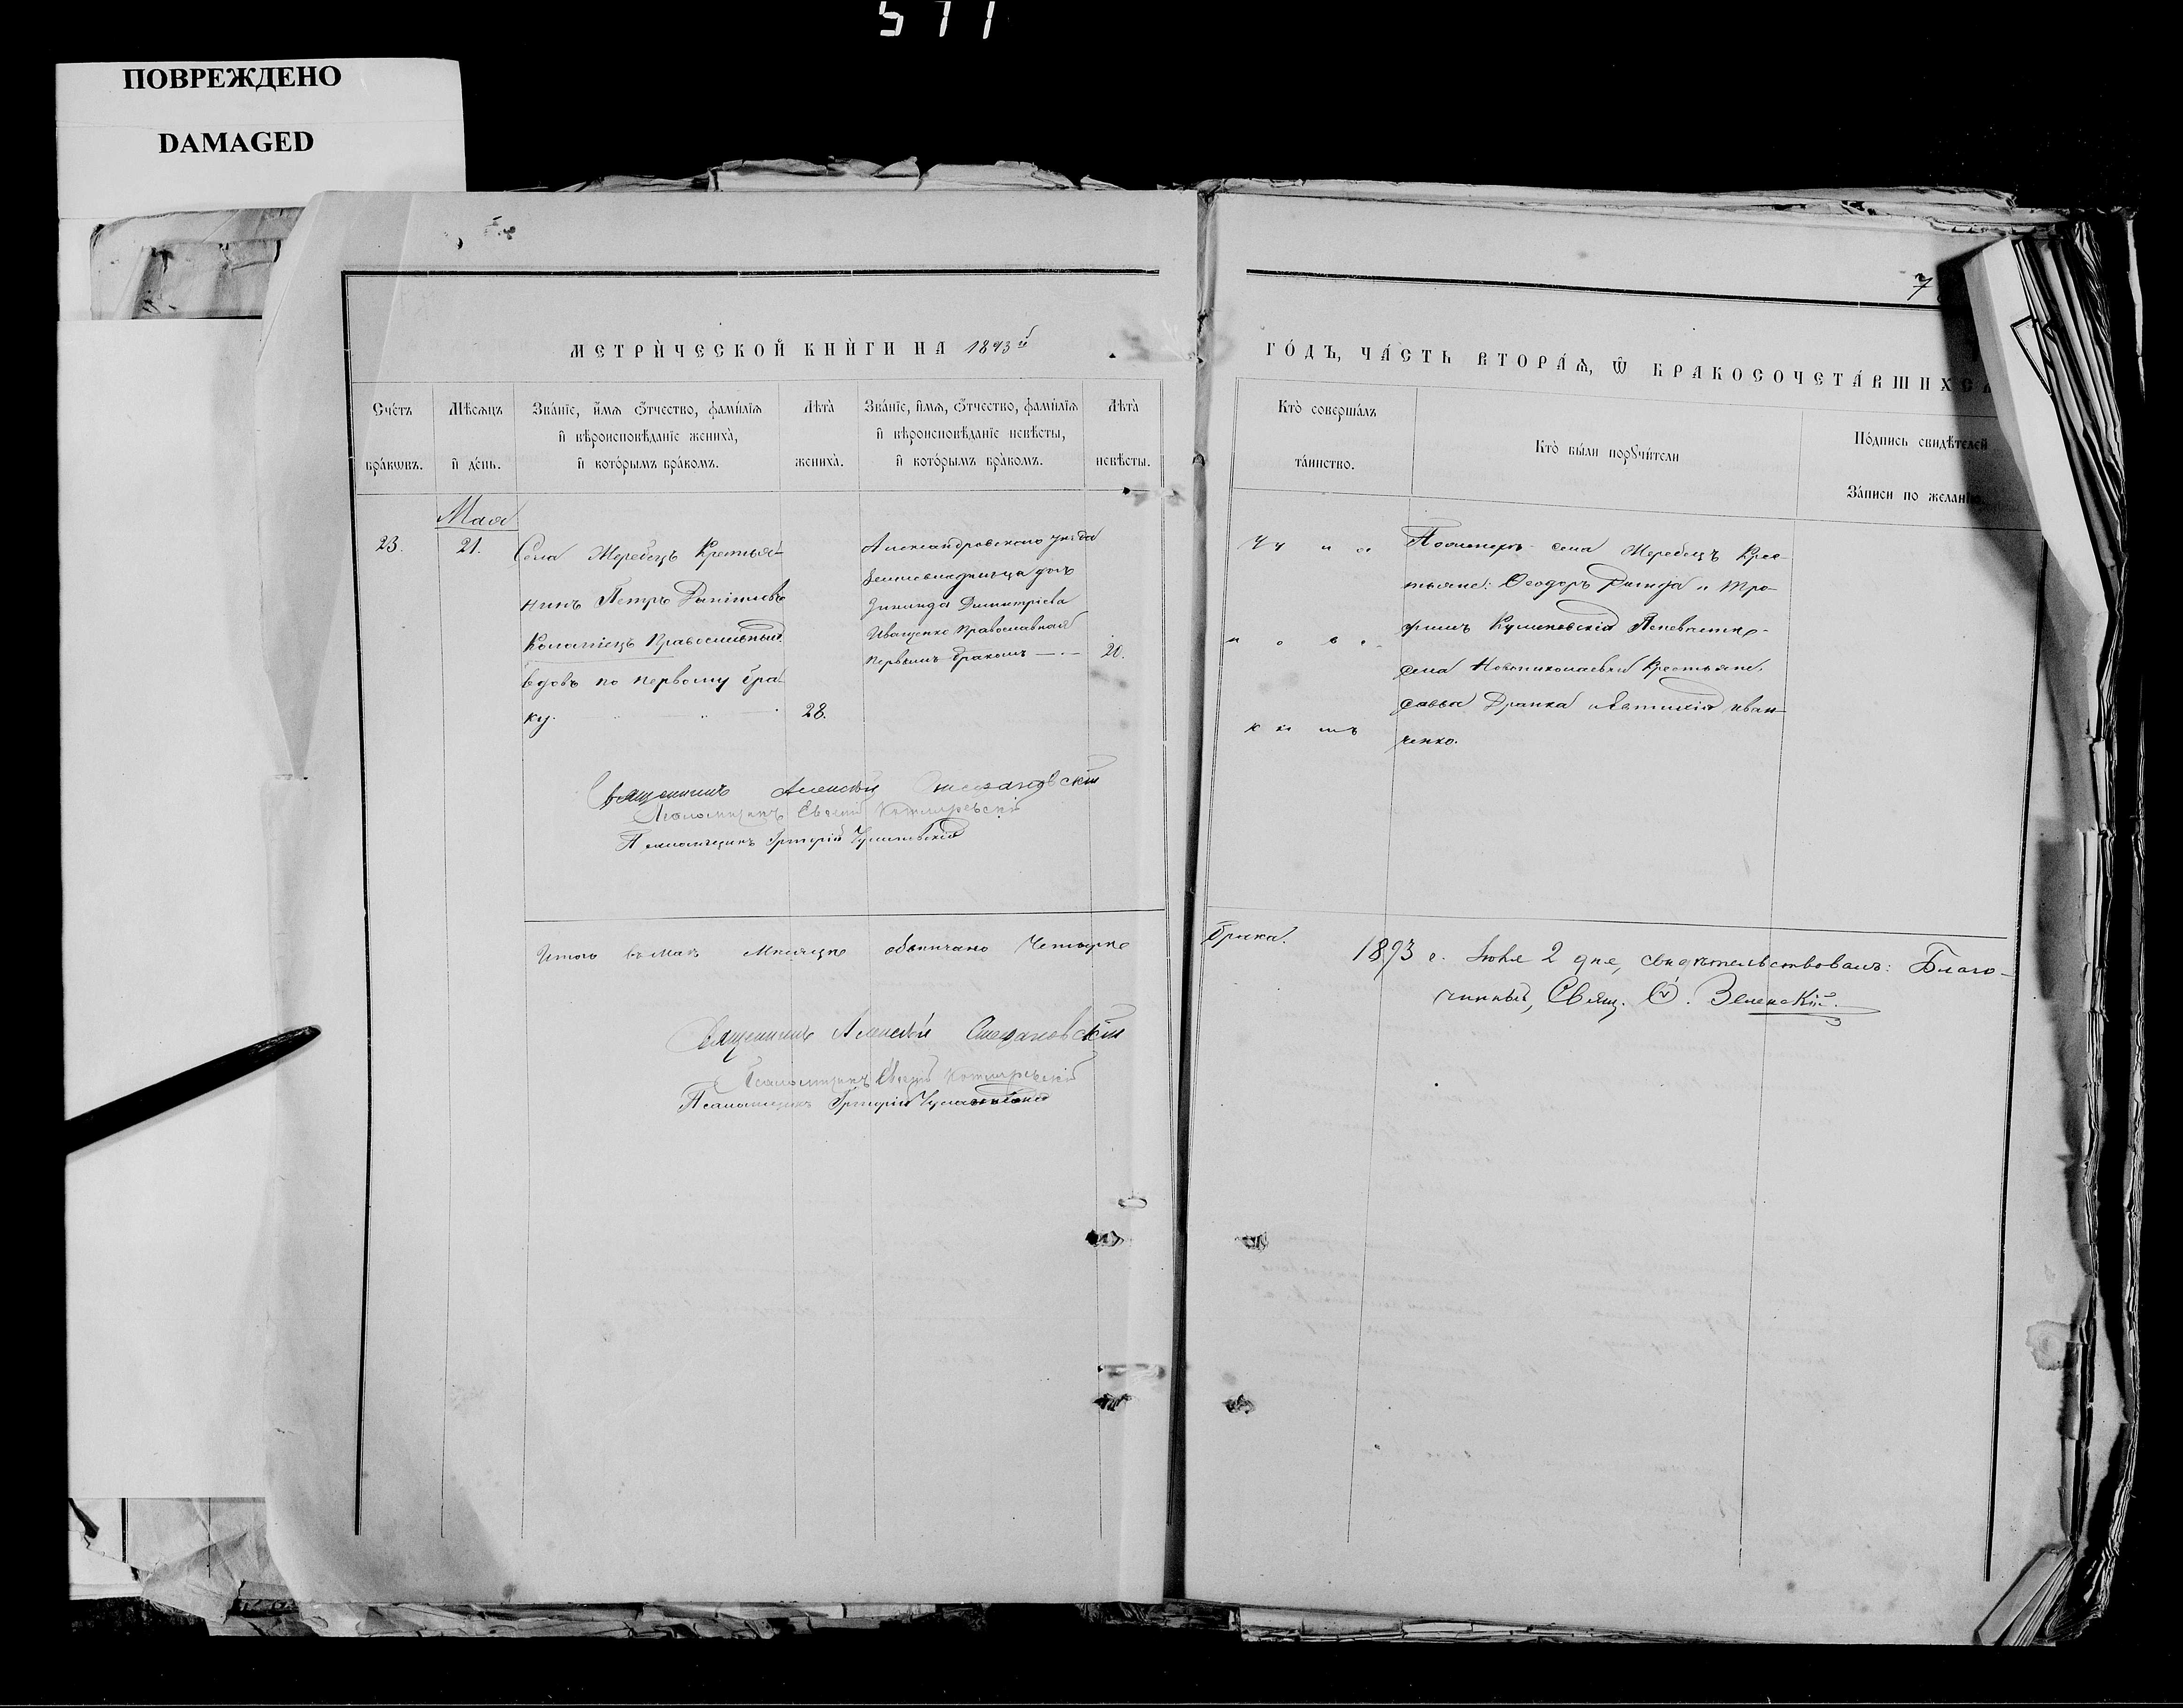 577
ПОВРЕЖДЕНО
DAMAGED
7
МЕТРИ́ЧЕСКОЙ КНИ́ГИ НА 1893й
ГО́ДЪ, ЧА́СТЬ ВТОРА́Ѧ, Ѿ БРАКОСОЧЕТА́ВШИХСѦ
Сче́тъ
бра́кѡвъ.
Мѣ́сѧцъ
и҆ де́нь.
Зва́нїе, и҆́мѧ ѻ҆́тчество, фами́лїѧ
и҆ вѣроисповѣ́данїе жениха̀,
и҆ кото́рымъ бра́комъ.
Лѣ́та
жениха̀.
Зва́нїе, и҆́мѧ, ѻ҆́тчество, фами́лїѧ
и҆ вѣроисповѣ́данїе невѣ́сты,
и҆ кото́рымъ бра́комъ.
Лѣ́та
невѣ́сты.
Кто̀ соверша́лъ
та́инство.
Кто̀ бы́ли порꙋчи́тели
По́дпись свидѣ́телей
За́писи по жела́нїю.
Мая
23.
21.
Села Жеребецъ Крестья-
нинъ Петръ Данииловъ
Коломіецъ Православный
вдовъ по первому бра-
ку.
28.
Александровскаго уѣзда
дочь
Зинаида Димитріева
Иващенко Православная
первымъ бракомъ —.—
20.
Поженихѣ села Жеребецъ Крес-
тьяне: Ѳеодоръ и Тро-
фимъ Куликовскій Поневѣстѣ-
села Новониколаевки Крестьяне,
Савва Дранка и Евтихій Иван-
ченко.
Священникъ Алексѣй Стефановскій
Псаломщикъ Евгеній
Псаломщикъ Григорій
Итого въ Маѣ Мѣсяцѣ обвѣнчано Четыре
брака.
1893 г. Іюля 2 дня, свидѣтельствовалъ: Благо-
чинный, Свящ. Ѳ. Зеленскій.
Священникъ Алексѣй Стефановскій
Псаломщикъ Евгеній
Псаломщикъ Григорій